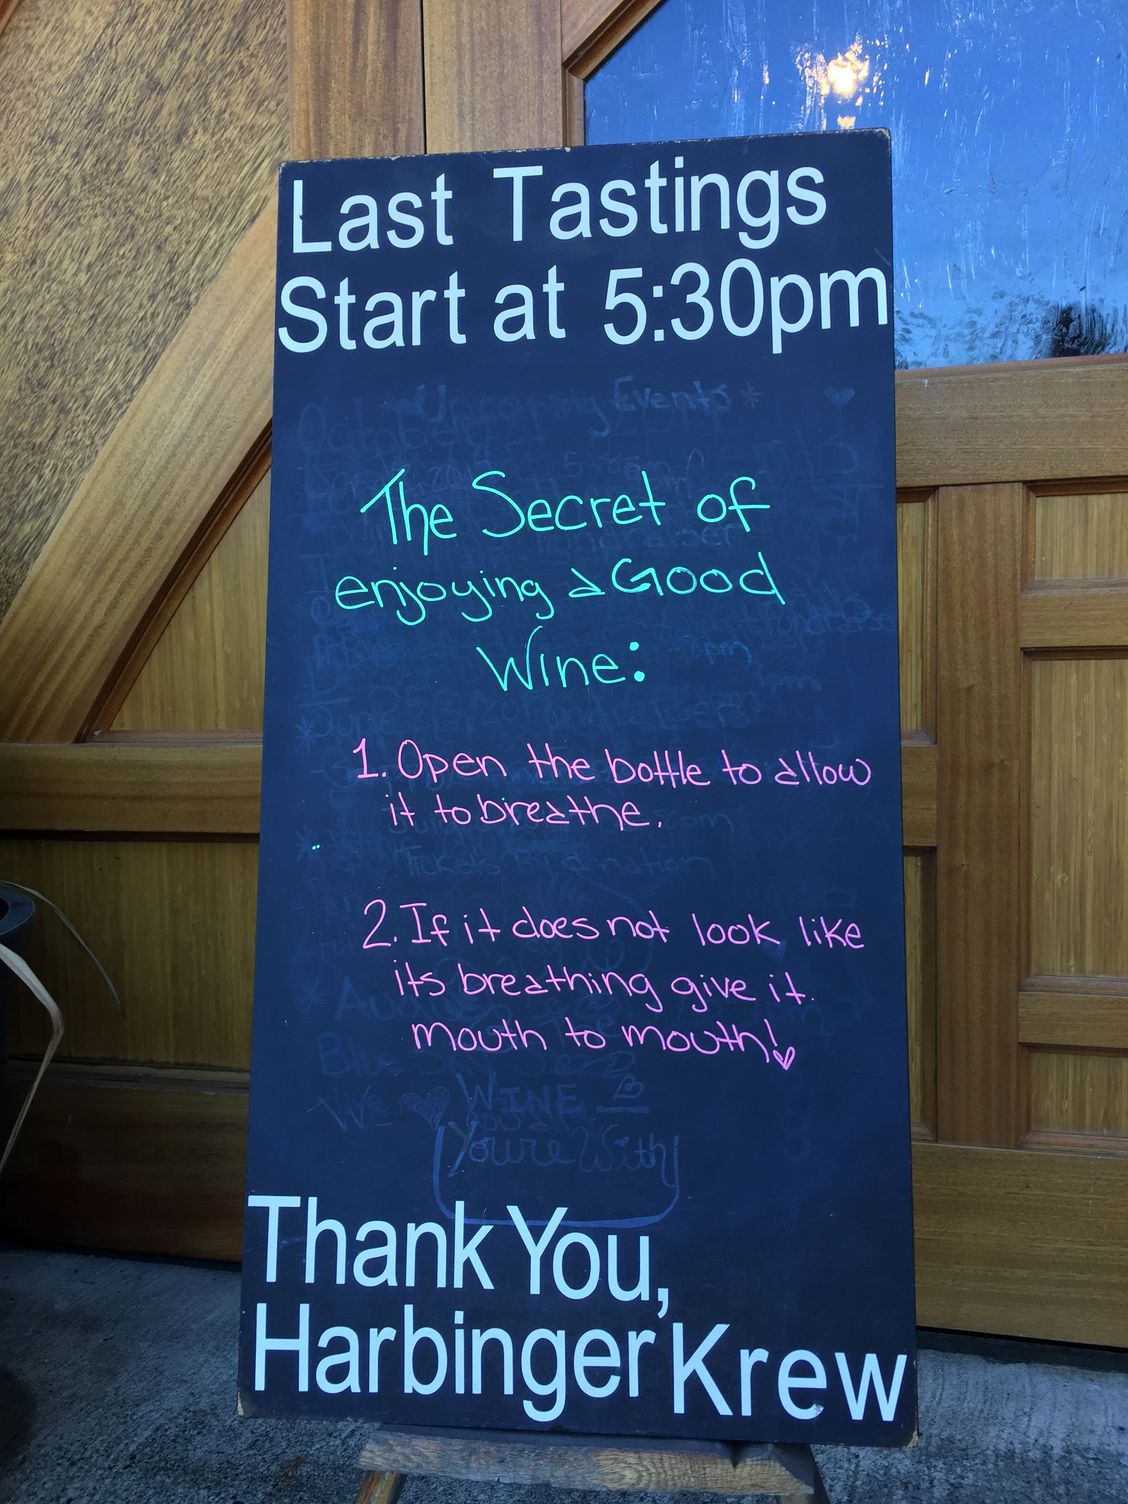 Last Tastings
Start at 5:30pm
Upcoming Events
The Secret of
enjoying a Good
Wine:
1. Open the bottle to allow
it to breathe.
Tickets By donation
2. If it does not look like
its breathing give it
mouth to mouth!
We WINE
You're With
Thank You,
Harbinger Krew